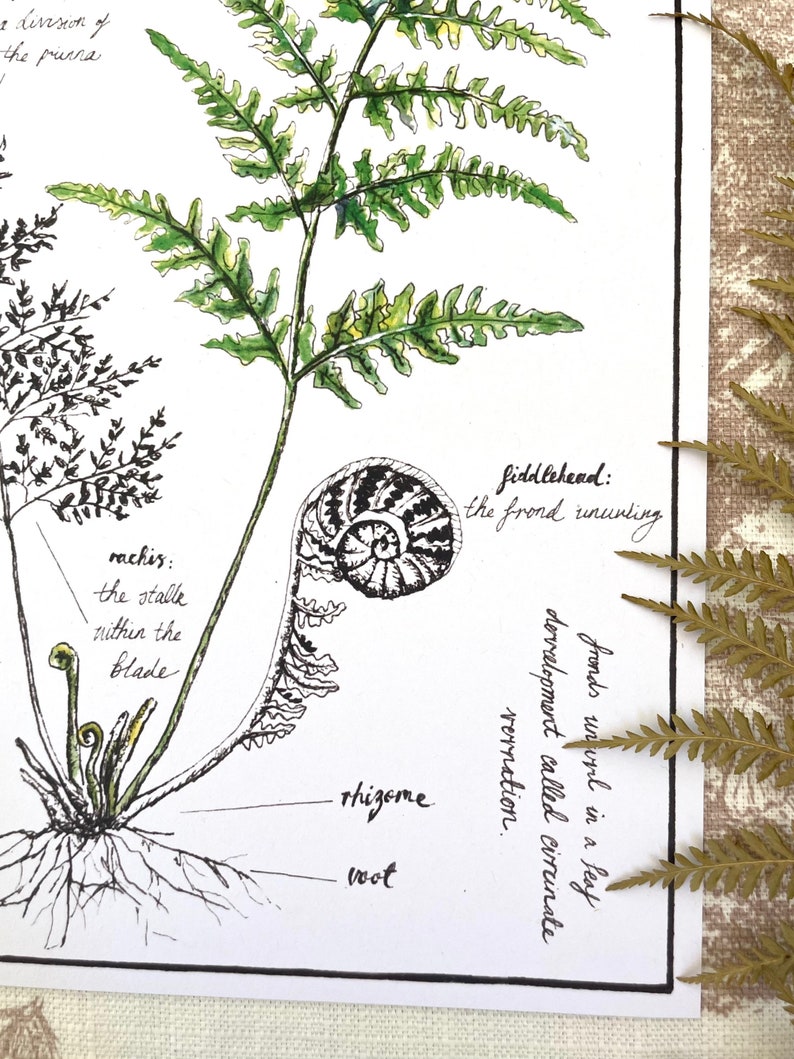 a division of
the pinna
fiddlehead:
the frond unurling
rachis:
the stalk
within the
blade
fronds unurl in a leaf
development called circinate
vernation.
rhizome
root